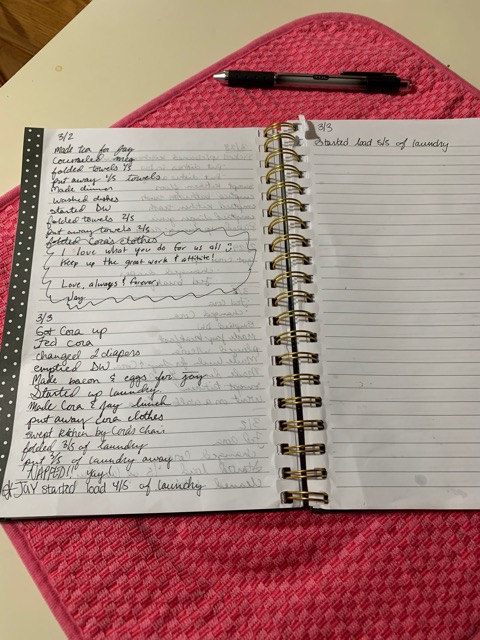 3/2
Made tea for Jay
Counseled
folded towels 1/5
put away 1/5 towels
Made dinner
washed dishes
started DW
folded towels 2/5
put away towels 2/5
folded Cora's clothes
I love what you do for us all :)
Keep up the great work & attitute!
Love, always & forever,
Jay
3/3
Got Cora up
Fed Cora
changed 2 diapers
emptied DW
Made bacon & eggs for Jay
Started up laundry
Made Cora & Jay lunch
put away Cora clothes
swept kitchen by Cora's chair
folded 3/5 of laundry
put 3/5 of laundry away
NAPPED!! Yay
* JAY started load 4/5 of laundry
3/3
Started load 5/5 of laundry